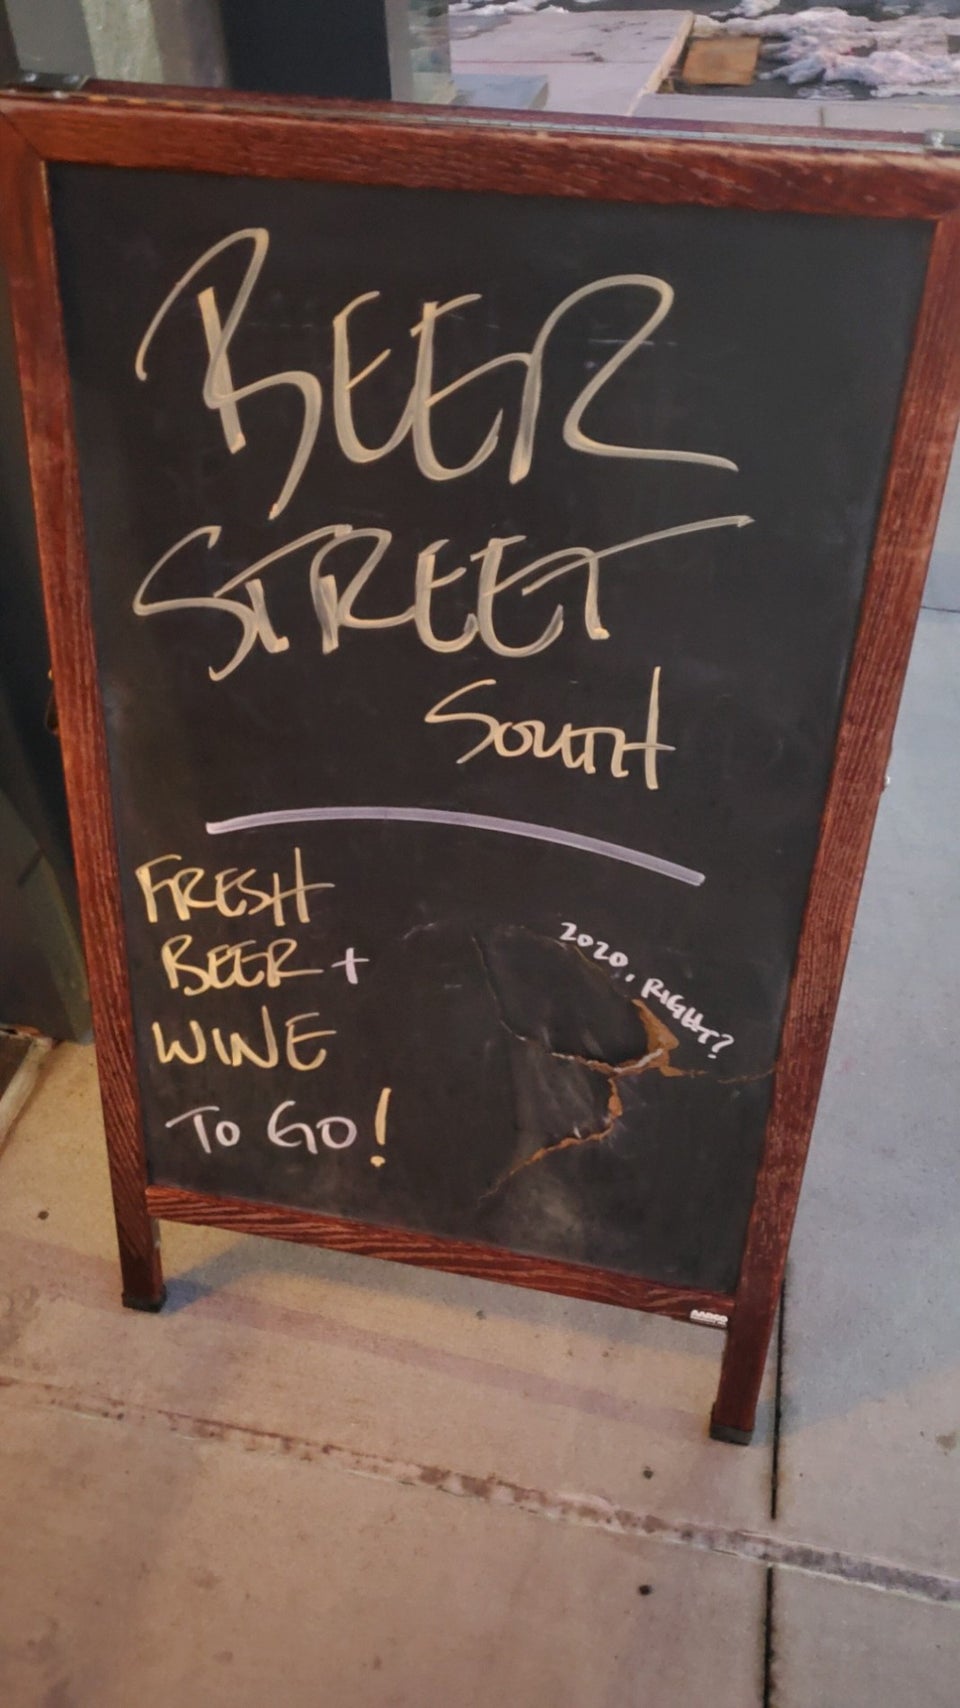 BEER
STREET
SOUTH
FRESH
BEER +
WINE
TO GO!
2020, RIGHT?